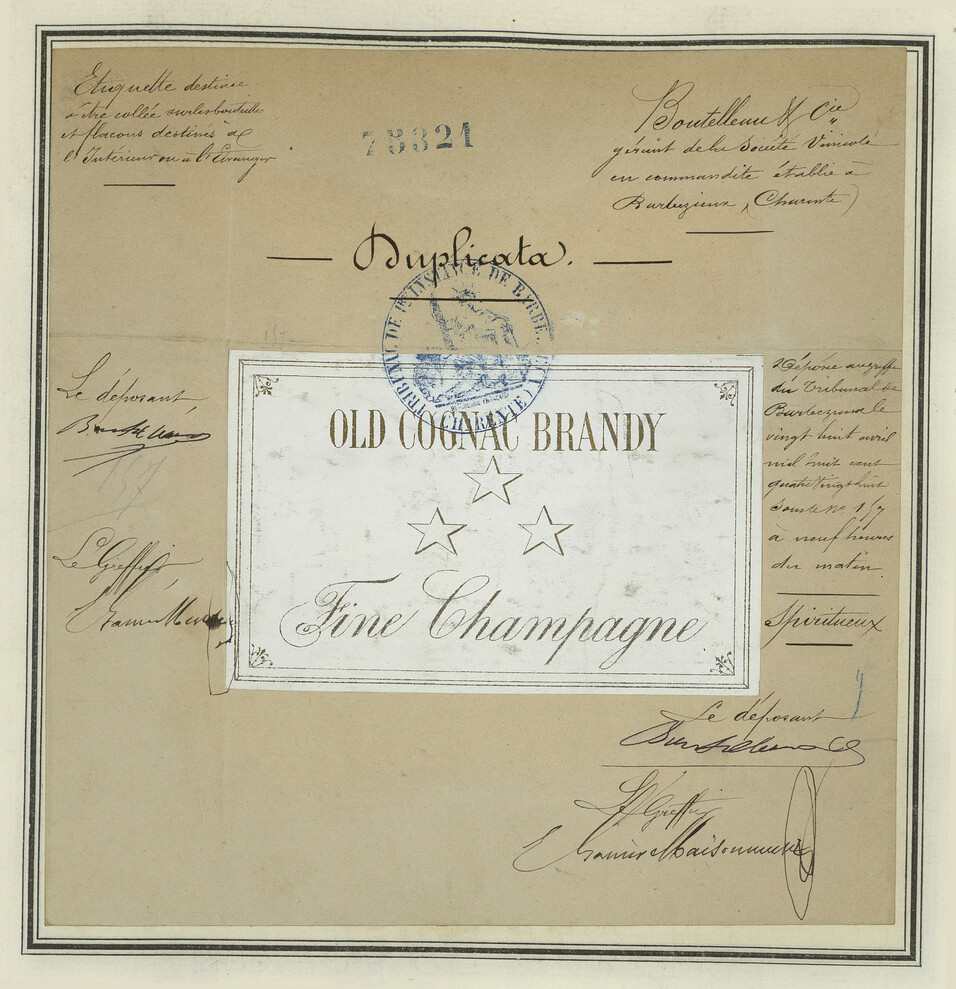 Etiquette destinée
à être collée sur les bouteilles
et flacons destinés à
l'Intérieur ou à l'Etranger
75321
Boutelleau & Cie
gérant de la Société Vinicole
en commandite établie à
Barbezieux (Charente)
Duplicata.
TRIBUNAL DE 1re INSTANCE DE BARBEZIEUX
(CHARENTE)
Le déposant
Boutelleau
157
Le Greffier
OLD COGNAC BRANDY
Fine Champagne
Déposé au greffe
du Tribunal de
Barbezieux le
vingt huit avril
mil huit cent
quatre vingt huit
sous le No 157
à neuf heures
du matin.
Spiritueux
Le déposant
Boutelleau
Le Greffier
Maisonneuve